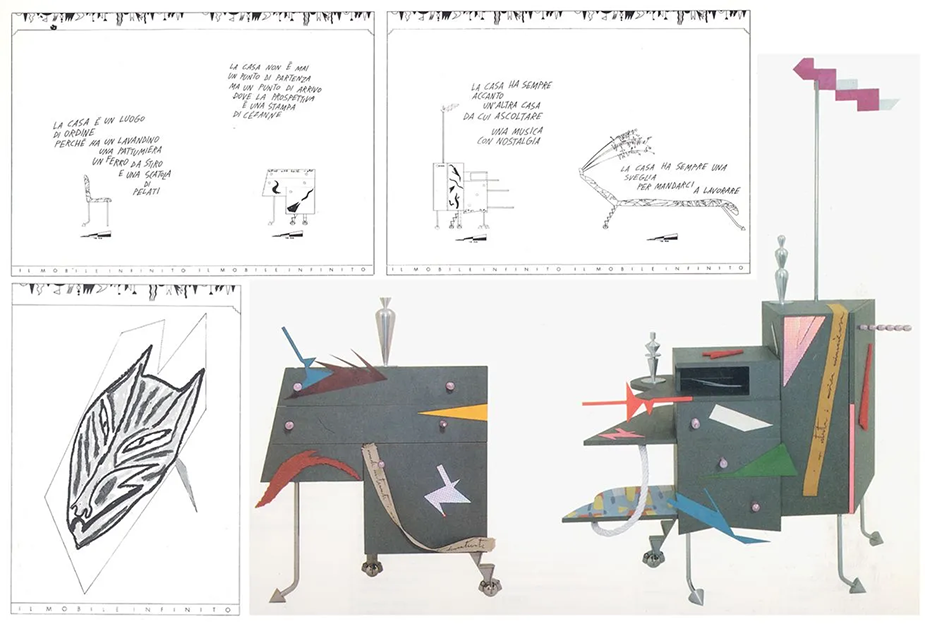 LA CASA È UN LUOGO
DI ORDINE
PERCHÈ HA UN LAVANDINO
UNA PATTUMIERA
UN FERRO DA STIRO
E UNA SCATOLA
DI
PELATI
LA CASA NON È MAI
UN PUNTO DI PARTENZA
MA UN PUNTO DI ARRIVO
DOVE LA PROSPETTIVA
È UNA STAMPA
DI CÉZANNE
IL MOBILE INFINITO IL MOBILE INFINITO
LA CASA HA SEMPRE
ACCANTO
UN'ALTRA CASA
DA CUI ASCOLTARE
UNA MUSICA
CON NOSTALGIA
LA CASA HA SEMPRE UNA
SVEGLIA
PER MANDARCI
A LAVORARE
IL MOBILE INFINITO IL MOBILE INFINITO
IL MOBILE INFINITO